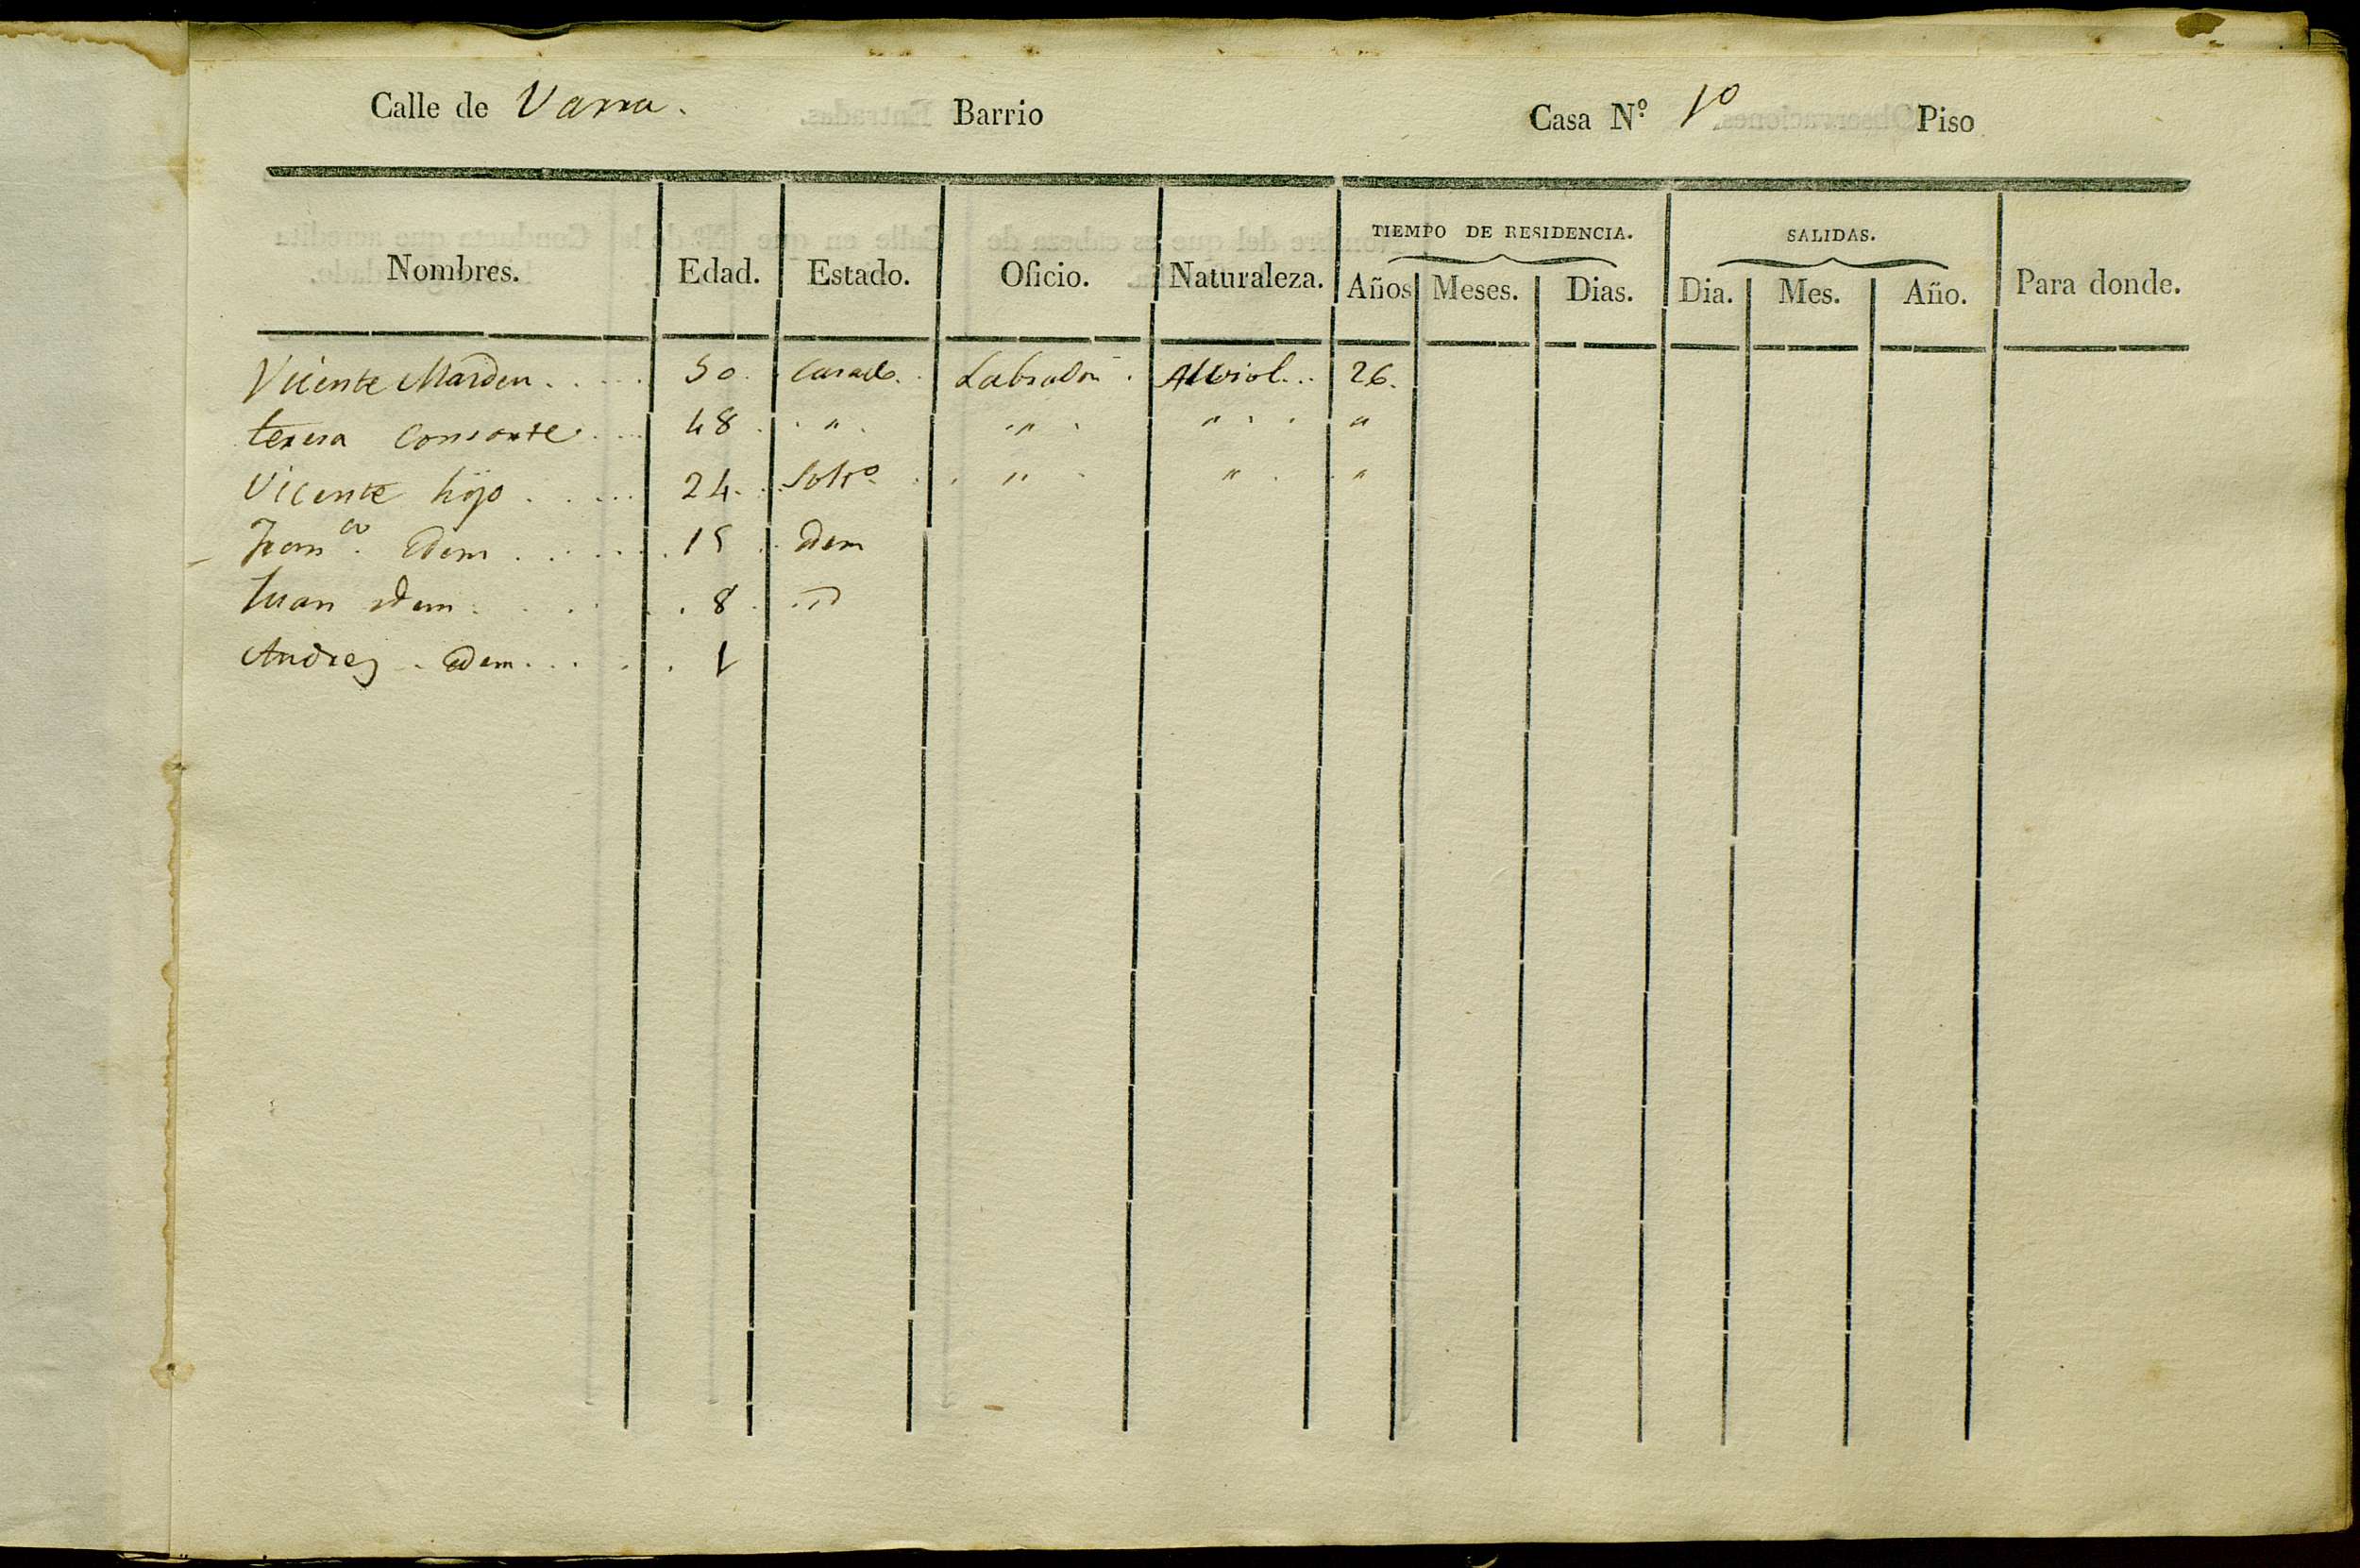 Calle de Varra. Barrio Casa N.º 10 Piso
TIEMPO DE RESIDENCIA. SALIDAS.
Nombres. Edad. Estado. Oficio. Naturaleza. Años Meses. Dias. Dia. Mes. Año. Para donde.
Vicente Marden..... 50. Casado. Labrador. 26.
teresa Consorte.... 48. " " " "
Vicente hijo..... 24. Solt.º " " "
Fran.co Edem...... 15. Idem
Juan idem...... 8. id
Andres. Edem...... 1